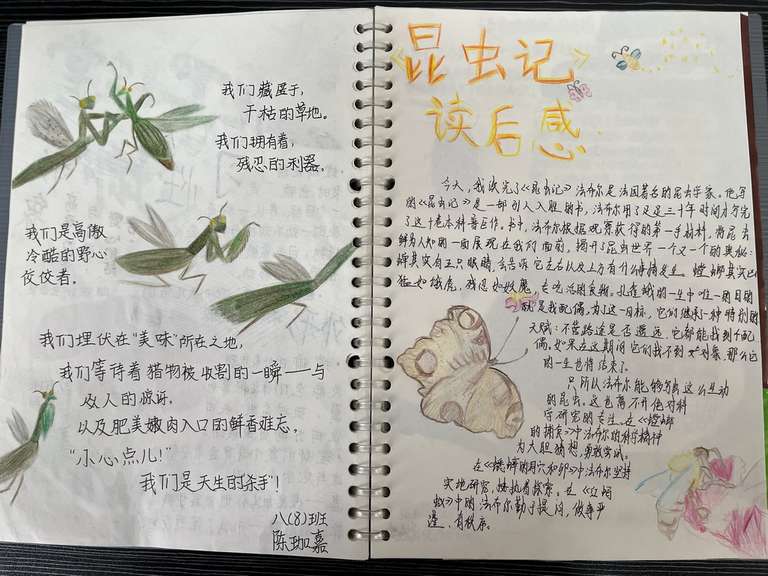 我们藏匿于，
干枯的草地。
我们拥有着，
残忍的利器。
我们是高傲
冷酷的野心
佼佼者。
我们埋伏在“美味”所在之地，
我们等待着猎物被收割的一瞬——与
众人的惊讶，
以及肥美嫩肉入口的鲜香难忘。
“小心点儿！”
我们是天生的杀手”！
八(8)班
陈珈嘉
《昆虫记》
读后感
今天，我读完了《昆虫记》法布尔是法国著名的昆虫学家。他写
的《昆虫记》是一部引人入胜的书，法布尔用了足足三十年时间才写完
了这十卷本科普巨作。书中，法布尔根据观察获得的第一手材料，将昆虫
鲜为人知的一面展现在我们面前，揭开了昆虫世界一个又一个的奥秘：
蝉其实有五只眼睛，会告诉它左右以及上方有什么事情发生。螳螂其实凶
猛如饿虎，残忍如妖魔，专吃活的食物。孔雀蛾的一生中唯一的目的
就是找配偶，为了这一目标，它们继承一种特别的
天赋：不管路途是否遥远，它都能找到个配
偶。如果在这期间它们找不到对象，那么它
的一生也将结束了。
只所以法布尔能够写出这么生动
的昆虫，这也离不开他对科
学研究的专注。在《螳螂
的捕食》中法布尔的科学精神
为大胆猜想，勇敢实验。
在《螳螂的
中法布尔坚持
实地研究，执着探索。在《
蚁》中的法布尔勤于提问，做事严
谨，有秩序。